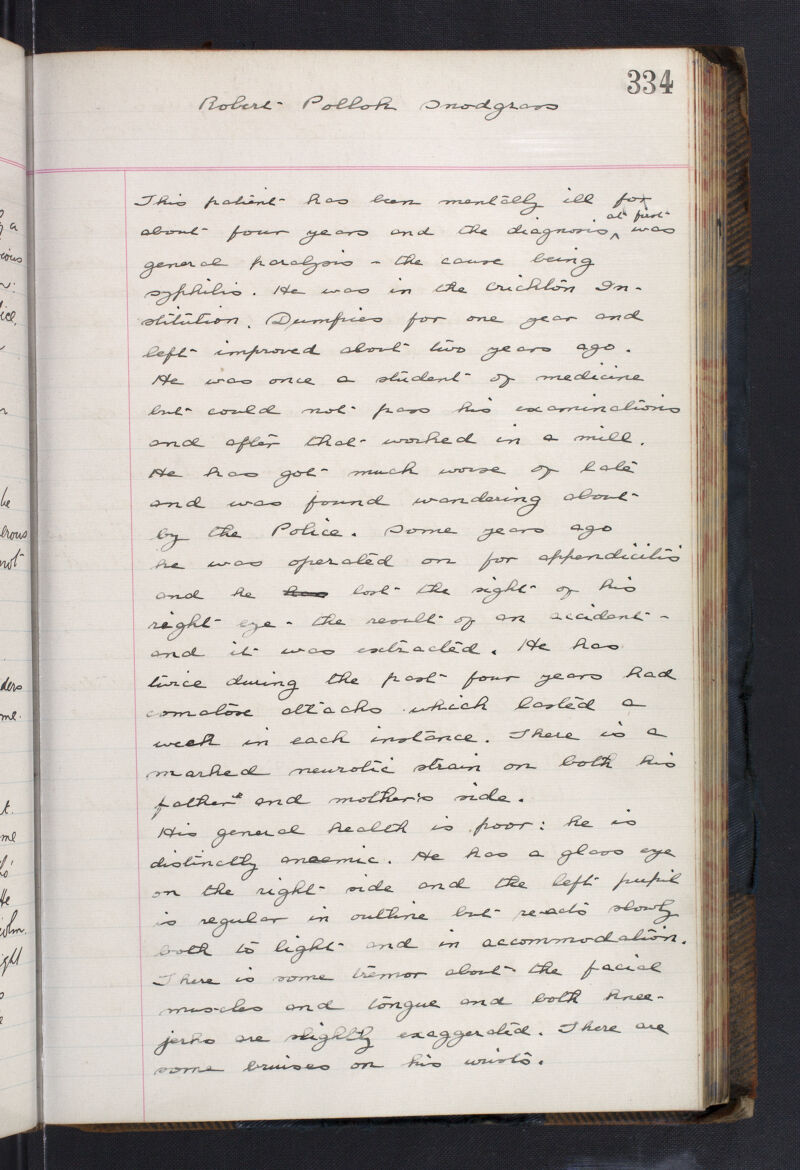 334
Robert Pollok Snodgrass
This patient has been mentally ill for
about four years and the diagnosis ^ at first was
general paralysis - the cause being
syphilis. He was in the Crichton In-
stitution. Dumfries for one year and
left improved about two years ago.
He was once a student of medicine
but could not pass his examinations
and after that worked in a mill.
He has got much worse of late
and was found wandering about
by the Police. Some years ago
he was operated on for appendicitis
and he has lost the sight of his
right eye - the result of an accident -
and it was extracted. He has
twice during the past four years had
comatose attacks which lasted a
week in each instance. There is a
marked neurotic strain on both his
father's and mother's side.
His general health is poor: he is
distinctly anaemic. He has a glass eye
on the right side and the left pupil
is regular in outline but reacts slowly
both to light and in accommodation.
There is some tremor about the facial
muscles and tongue and both knee-
jerks are slightly exaggerated. There are
some bruises on his wrists.